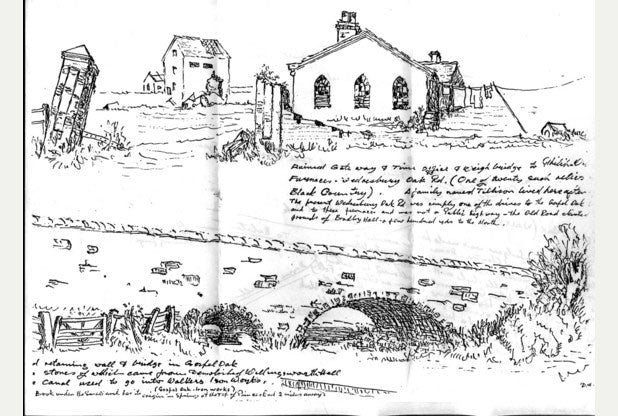 Ruined Gate way & Time office & Weigh bridge to
Furnaces - Wedensbury Oak Rd. (One of twenty such relics
Black Country). A family named Tillison lived here after
The present Wednesbury Oak Rd was simply one of the drives to the Gospel Oak
and to these furnaces and was not a Public highway - the Old Road
grounds of Bradley Hall - a few hundred yds to the North.
retaining wall & bridge in Gospel Oak
stones of which came from Demolished Willingsworth Hall
Canal used to go into Walkers Iron Works.
(Gospel Oak Iron works)
Brook under the Canal and has its origin in Springs at the of Princes End 2 miles away